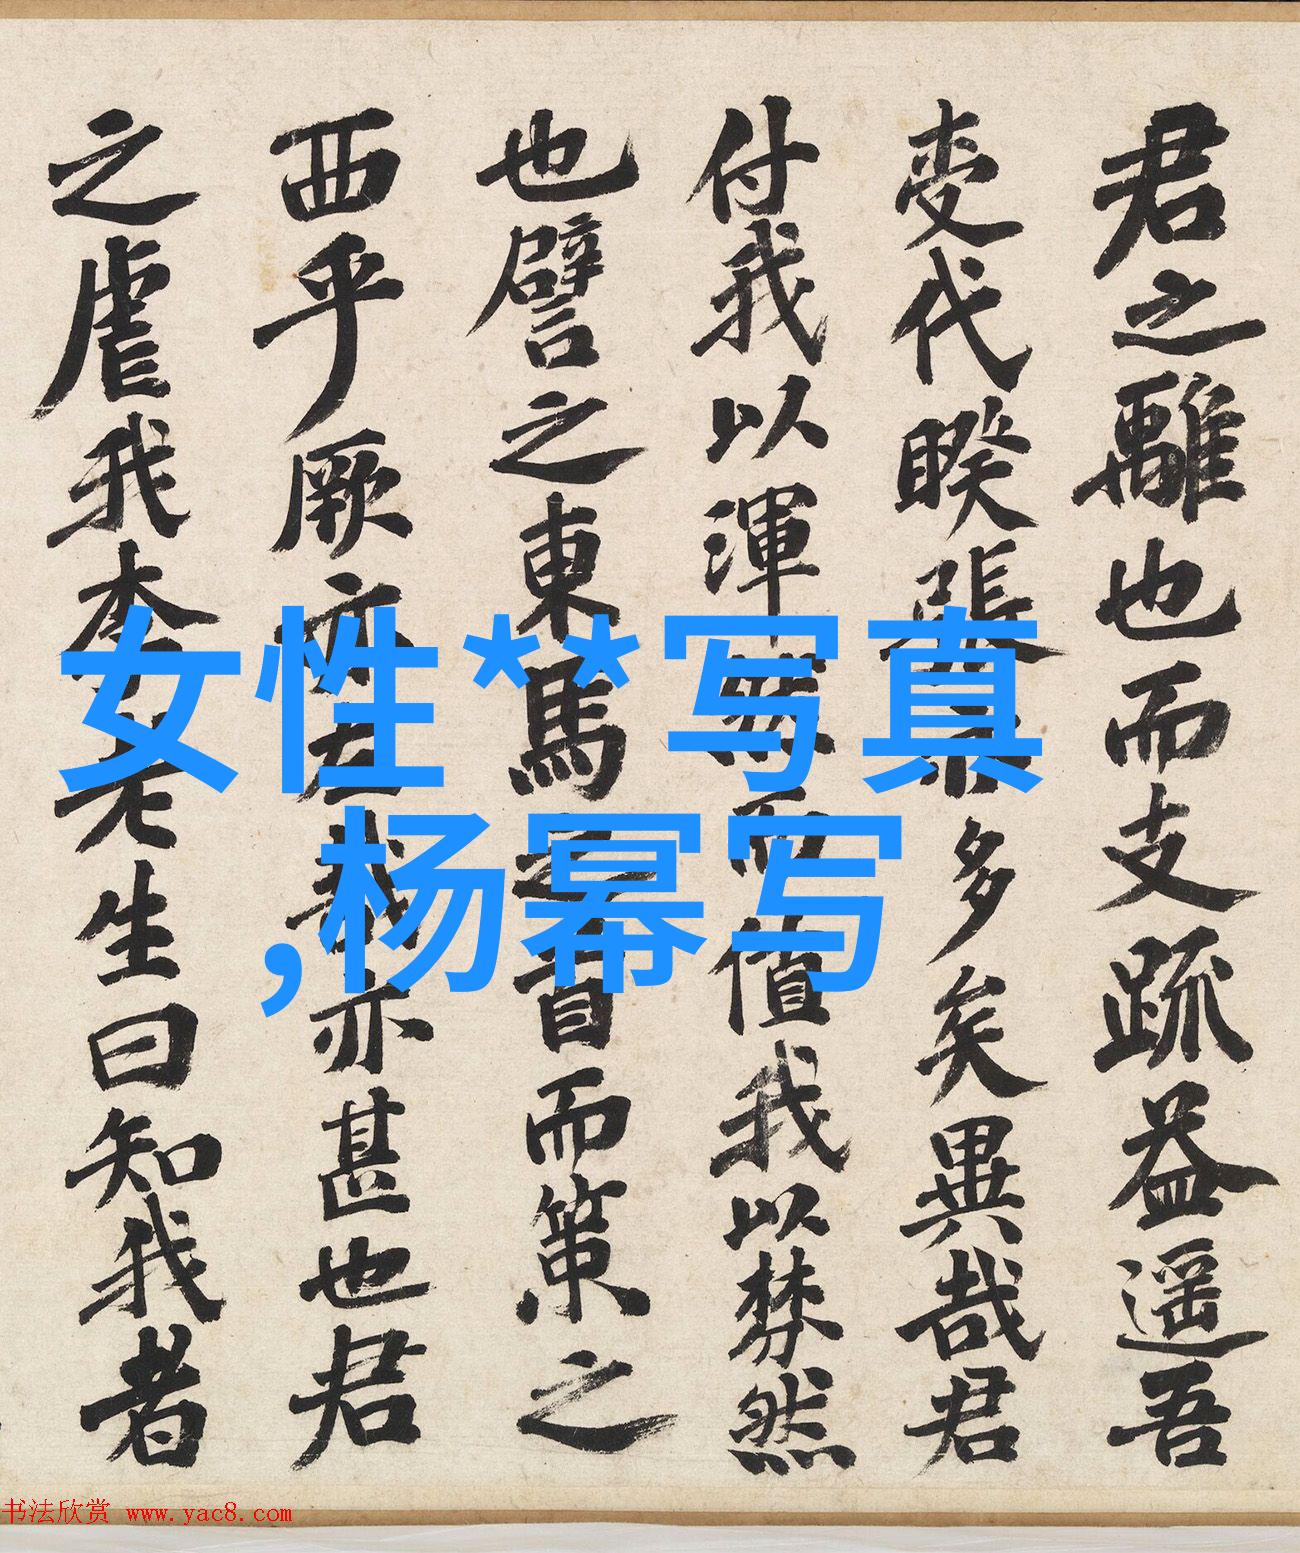 君之離也而支疏益遥吾
变代睽張 多矣異哉君
付我以渾 而值我以棼然
也譬之東馬之首而策之
西乎厥亦左哉亦甚也君
之虐我李老生曰知我者
女性**写真
,杨幂写
书法欣赏 www.yac8.com